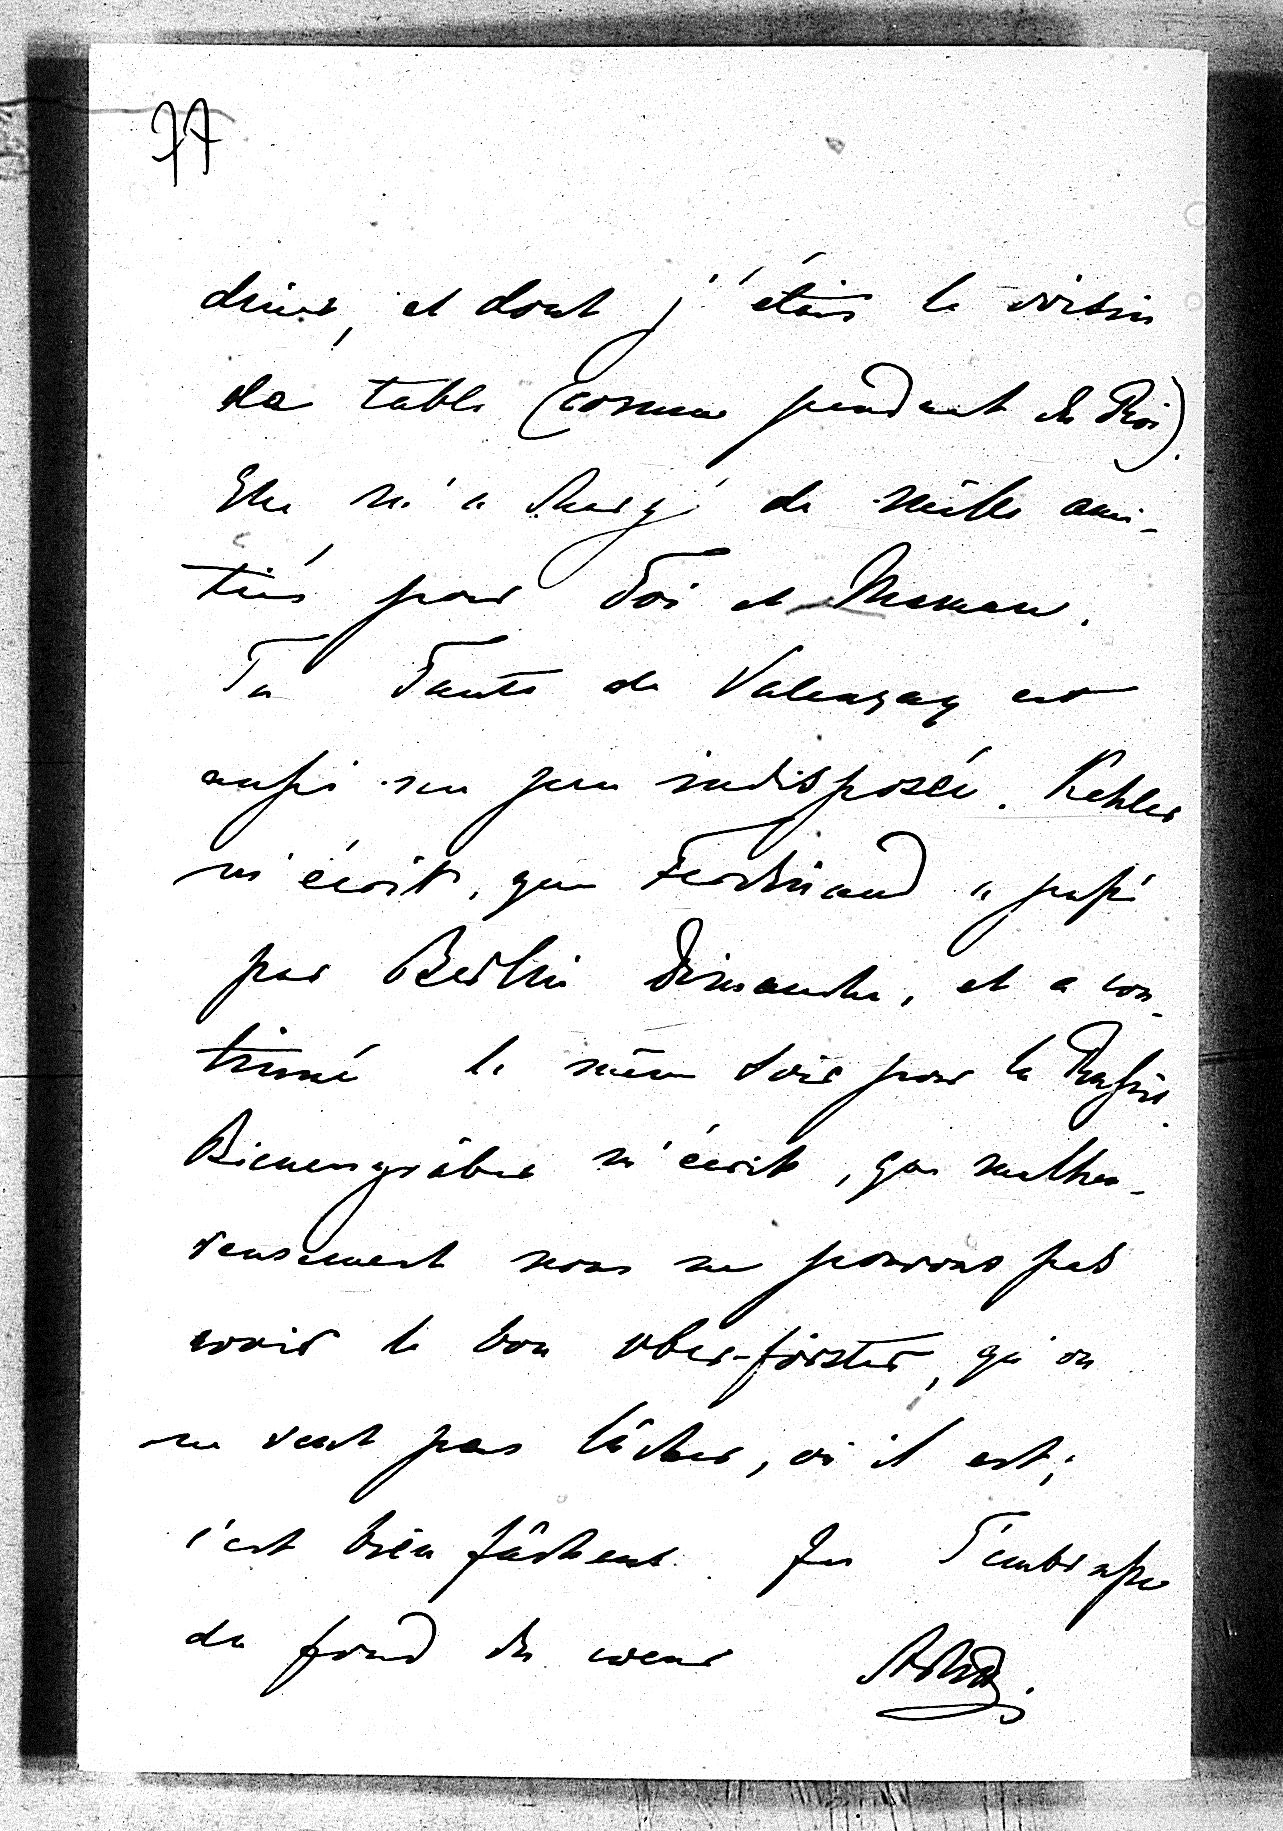 77
dîné, et dont j'étais le voisin
de table (comme pendant du Roi).
Elle m'a chargé de mille ami-
tiés pour Toi et Maman.
Ta Tante de Valençay est
aussi un peu indisposée. Kehler
m'écrit, que Ferdinand a passé
par Berlin Dimanche, et a con-
tinué le même soir pour la Russie.
Bienengräber m'écrit, que malheu-
reusement nous ne pouvons pas
avoir le bon ober-förster, qu'on
ne veut pas lâcher, où il est;
c'est bien fâcheux. Je T'embrasse
du fond du coeur